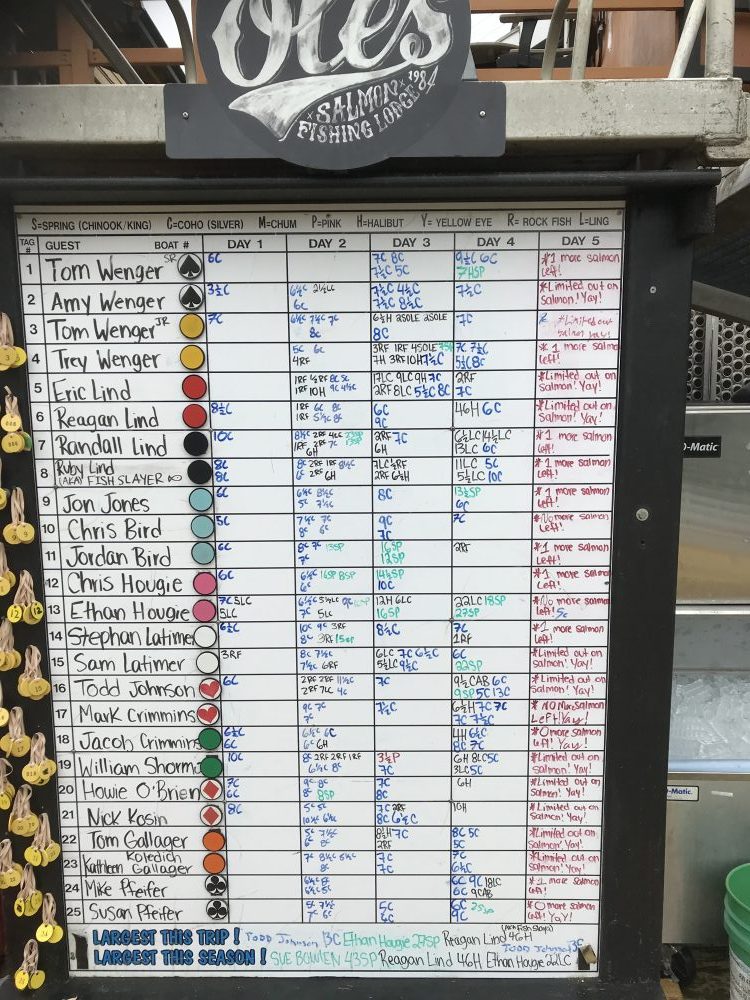 Oles
SALMON 1984
FISHING LODGE
S=SPRING (CHINOOK/KING) C=COHO (SILVER) M=CHUM P=PINK H=HALIBUT Y=YELLOW EYE R=ROCK FISH L=LING
TAG # GUEST BOAT # DAY 1 DAY 2 DAY 3 DAY 4 DAY 5
1 Tom Wenger SR 6C 7C 8C 9½C 6C *1 more salmon
7½C 5C 7HSP left!
2 Amy Wenger 3½C 6½C 2½LC 7½C 4½C 7½C *Limited out on
6C 7½C 8½C salmon! Yay!
3 Tom Wenger JR 7C 6½C 7½C 7C 6½H 2SOLE 2SOLE 7C *Limited out
8C 8C salmon Yay!
4 Trey Wenger 5C 6C 3RF 1RF 4SOLE 7C 7½C *1 more salmon
4RF 7H 3RF 10H 7½C 5½C 8C left!
5 Eric Lind 1RF ½RF 8C 5C 17LC 9LC 9H 7C 2RF *Limited out on
1RF 10H 9C 4½C 2RF 8LC 5½C 8C 7C salmon! Yay!
6 Reagan Lind 8½C 1RF 6C 8C 6C 46H 6C *Limited out on
1RF 5½C 8C 9C salmon! Yay!
7 Randall Lind 10C 8½C 2RF 4LC 2RF 7C 6½LC 14½LC *1 more salmon
1RF 2RF 7C 6H 6H 13LC 6C left!
8 Ruby Lind 8C 8C 2RF 1RF 8½C 7LC ½RF 11LC 5C *1 more salmon
(AKA) FISH SLAYER 8C 6C 2RF 6H 2RF 6½H 5½LC 10C left!
9 Jon Jones 6C 6½C 8½C 8C 13½SP *1 more salmon
5C 7½C 6C left!
10 Chris Bird 5C 7½C 7C 9C 7C *No more salmon
8C 7C left!
11 Jordan Bird 6C 8C 7C 13SP 16SP 2RF *1 more salmon
7C 12SP left!
12 Chris Hougie 6C 6½C 16SP 8SP 14½SP *1 more salmon
6C 10C left!
13 Ethan Hougie 7C 5LC 6½C 5½LC 9C 12H 6LC 22LC 18SP *No more salmon
5LC 7C 5LC 16SP 27SP left! 5C
14 Stephan Latimer 6½C 10C 9C 3RF 8½C 7C *1 more salmon
8C 3RF 15SP 1RF left!
15 Sam Latimer 3RF 8C 7½C 6LC 7C 6½C 6C *Limited out on
7½C 6RF 5½LC 9½C 22SP salmon! Yay!
16 Todd Johnson 6C 2RF 2RF 11½C 7C 9½CAB 6C *Limited out on
2RF 7LC 4C 9SP 5C 13C salmon! Yay!
17 Mark Crimmins 9C 7C 7½C 6½H 7C 7C *NO More salmon
7C 7C 7½C Left! Yay!
18 Jacob Crimmins 6½C 6½C 6C 4H 6½C *0 more salmon
6C 6C 6H 8C 7C left! Yay!
19 William Shorma 10C 8C 2RF 2RF 1RF 3½P 6H 8LC 5C *Limited out on
6½C 8C 7C 3LC 5C salmon! Yay!
20 Howie O'Brien 7C 9C 8C 7C 6H *Limited out on
6C 8C 8SP 8C salmon! Yay!
21 Nick Kosin 8C 5C 5C 7C 2RF 10H *Limited out on
10½C 6½C 8C 6½C salmon! Yay!
22 Tom Gallager 5C 7½C 8½H 7C 8C 5C *Limited out on
6C 8C 2RF 5C salmon! Yay!
23 Kathleen Koledich Gallager 7C 8½C 6½C 7C 7C *Limited out on
7C 6½C salmon! Yay!
24 Mike Pfeifer 6C 9C 18LC *1 more salmon
6C 9CAB left!
25 Susan Pfeifer 5C 7½C 5C 6C 25SP *0 more salmon
7C 6C 6C 9C left! YAY!
LARGEST THIS TRIP! Todd Johnson 13C Ethan Hougie 27SP Reagan Lind 46H
LARGEST THIS SEASON! SUE BOWEN 43SP Reagan Lind 46H Ethan Hougie 22LC Todd Johnson 13C
O-Matic
-Matic.